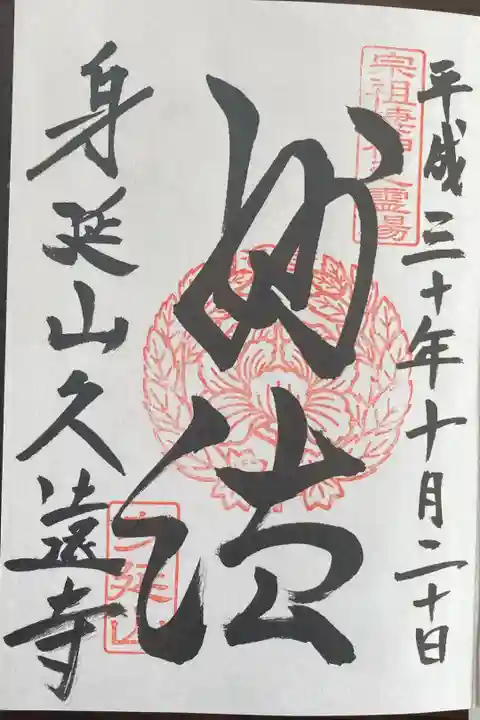 平成三十年十月二十日
宗祖棲神之霊場
妙法
身延山久遠寺
身延山